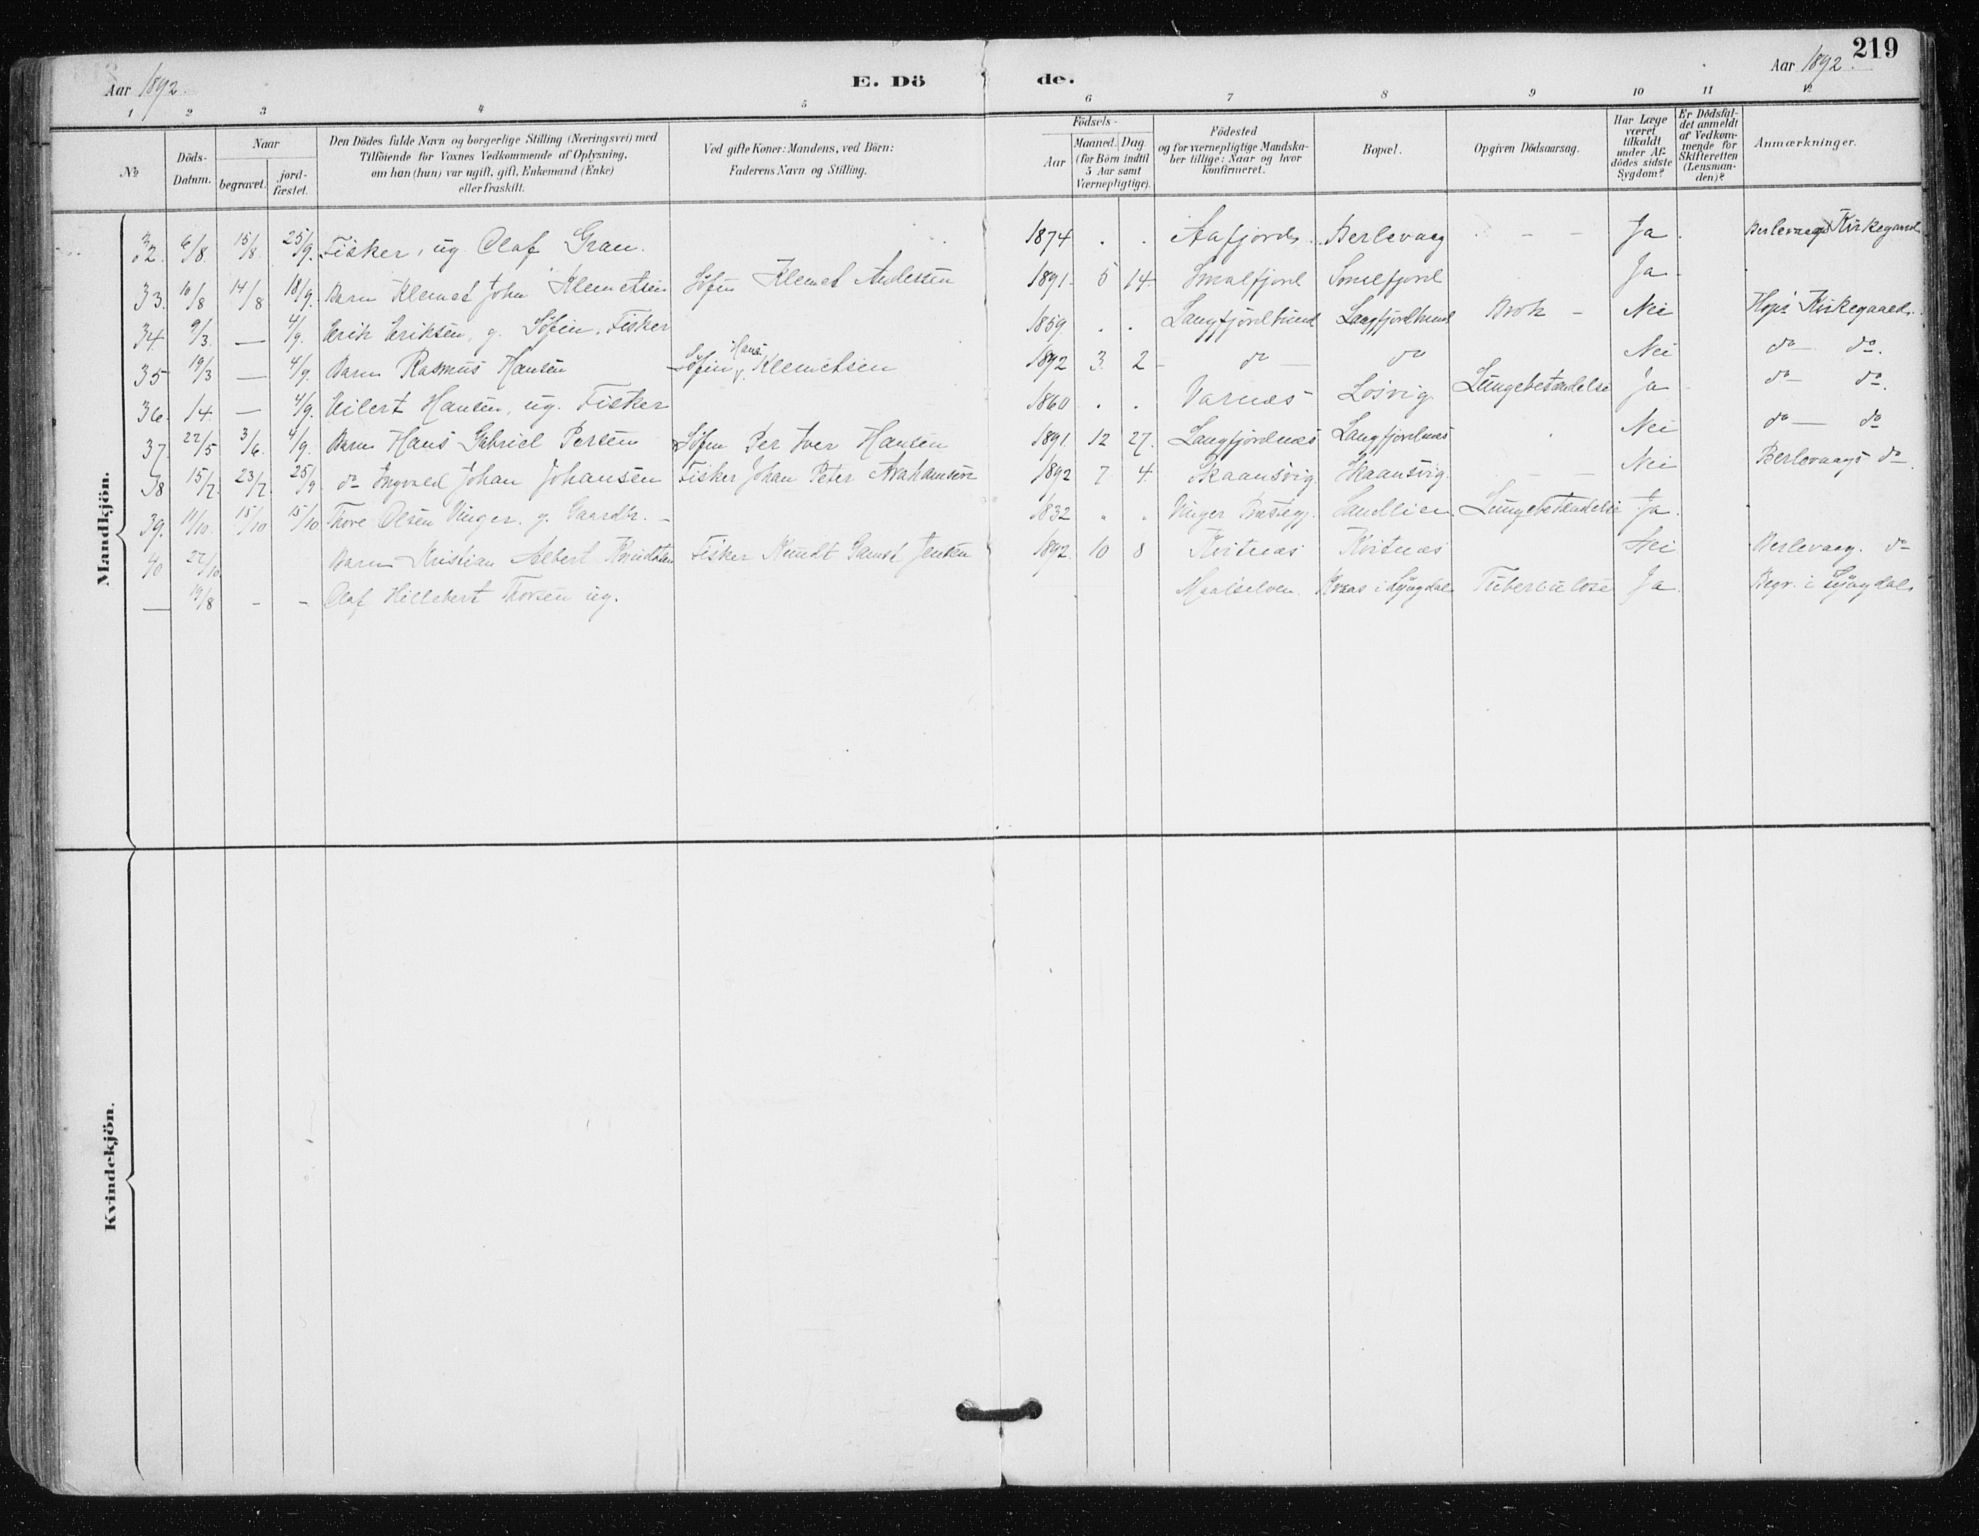 219
Aar 1892. E. Dö de. Aar 1892.
1 2 3 4 5 6 7 8 9 10 11 12
№ Döds-Datum. Naar begravet. jord-fæstet. Den Dödes fulde Navn og borgerlige Stilling (Næringsvei) med Tilföiende for Voxnes Vedkommende af Oplysning, om han (hun) var ugift, gift, Enkemand (Enke) eller fraskilt. Ved gifte Koner: Mandens, ved Börn: Faderens Navn og Stilling. Födsels- Aar Maaned. Dag. (for Börn indtil 5 Aar samt Værnepligtige). Födested og for værnepligtige Mandskaber tillige: Naar og hvor konfirmeret. Bopæl. Opgiven Dödsaarsag. Har Læge været tilkaldt under Afdödes sidste Sygdom? Er Dödsfaldet anmeldt af Vedkommende for Skifteretten (Lensmanden)? Anmærkninger.
Mandkjön.
32. 6/8 15/8 25/9. Fisker, ug Olaf Gran. 1874 . . Aafjorden Berlevaag - - - Ja Berlevaags Kirkegaard
33. 10/8 14/8 18/9. Barn Klemet John Klemetsen Søfin Klemet Andersen 1891. 5 14. Smalfjord Smalfjord Ja
34. 9/3. — 4/9. Erik Eriksen, g. Søfin. Fisker 1859 . . Langfjordbund Langfjordbund Brok - Nei Hops Kirkegaard.
35 19/3 — 4/9. Barn Rasmus Hansen Søfin Hans Klemetsen 1892 3. 2 do do Nei do do.
36. 14. — 4/9. Eilert Hansen, ug. Fisker 1860 . . Varnæs Losvig Lungebetændelse Ja do do.
37. 22/5 3/6. 4/9. Barn Hans Gabriel Persen Søfin Per Iver Hansen 1891. 12 27. Langfjordnæs Langfjordnæs Nei do do
38 15/7. 23/7. 25/9 do Ingvald Johan Johansen Fisker Johan Peter 1892 7 4. Skaansvig Skaansvig. — — Nei Berlevaags do
39. 11/10. 15/10 15/10 Thore Olsen Vinger. g. Gaardbr. 1832 . . Vinger Sandlien Lungebetændelse Ja.
40 22/10. Barn Kristian Albert Knudtsen Fisker Knudt Jensen 1892. 10 8 Kvitnæs Kvitnæs Nei Berlevaag. do
— 19/8 - - Olaf Hillebert Thorsen ug. Maalselven. i Lyngdal Tuberculose Ja Begr. i Lyngdal
Kvindekjön.